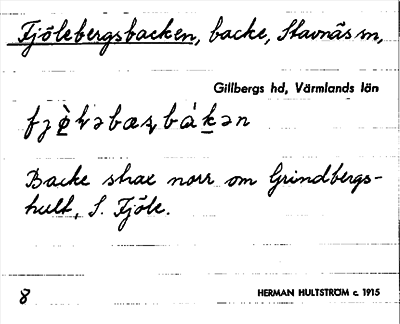 Fjölebergsbacken, backe, Stavnäs sn,
Gillbergs hd, Värmlands län
Backe strax norr om Grindbergs-
hult, S. Fjöle.
8
HERMAN HULTSTRÖM c. 1915